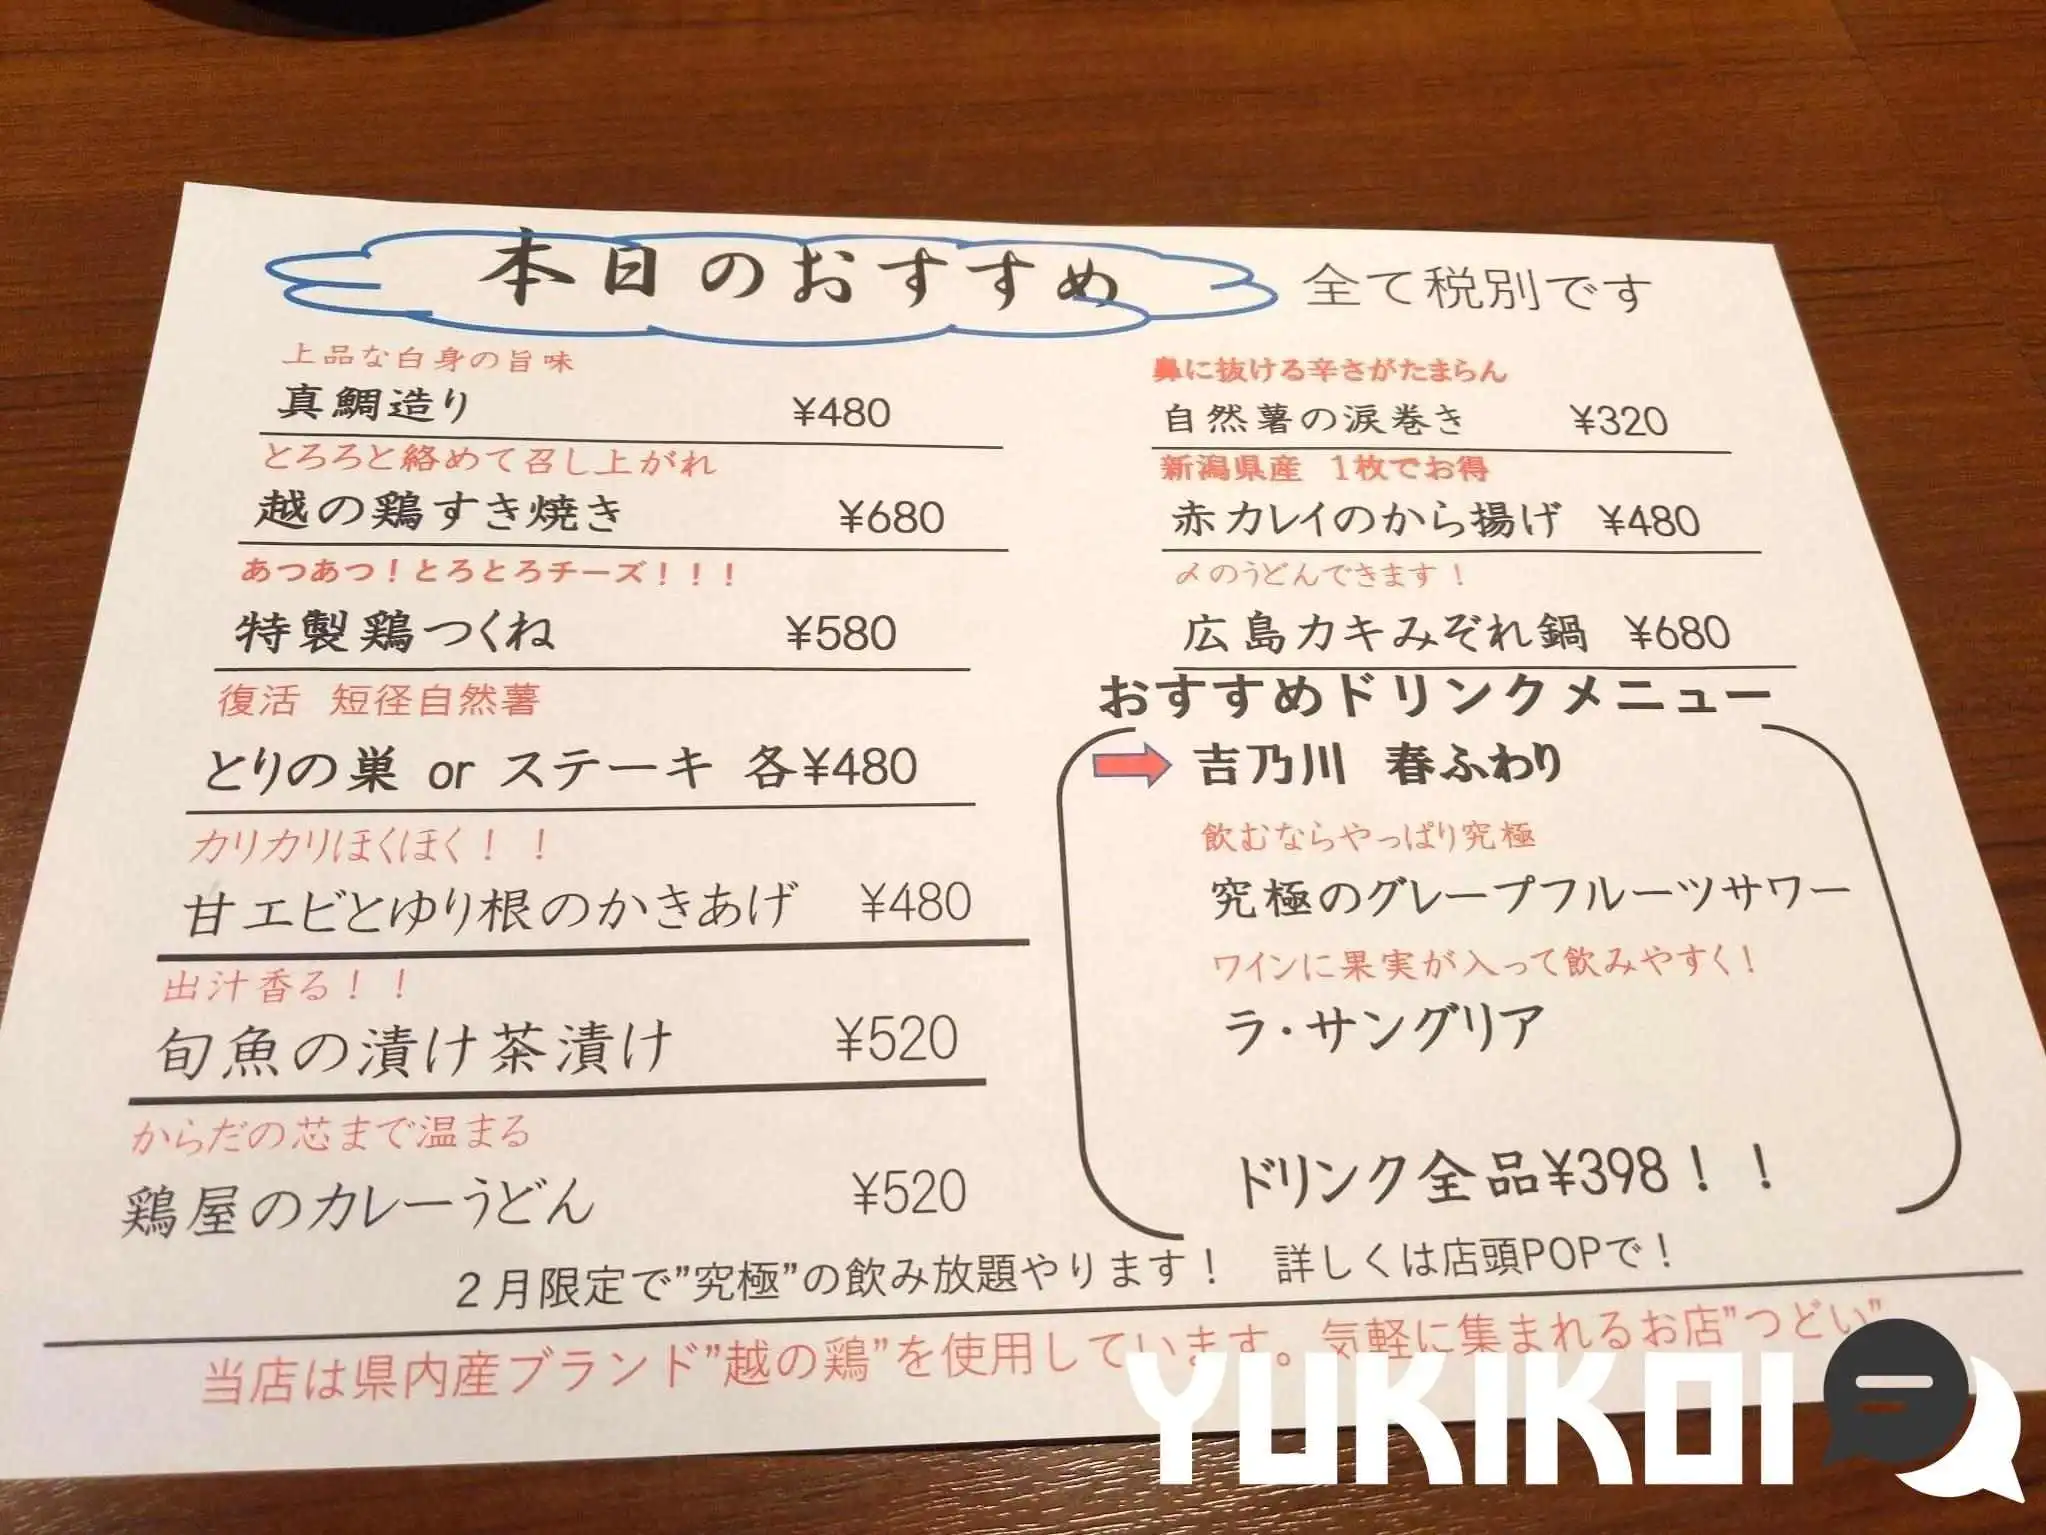 本日のおすすめ
全て税別です
上品な白身の旨味
真鯛造り ¥480
とろろと絡めて召し上がれ
越の鶏すき焼き ¥680
あつあつ！とろとろチーズ！！！
特製鶏つくね ¥580
復活 短径自然薯
とりの巣 or ステーキ 各¥480
カリカリほくほく！！
甘エビとゆり根のかきあげ ¥480
出汁香る！！
旬魚の漬け茶漬け ¥520
からだの芯まで温まる
鶏屋のカレーうどん ¥520
鼻に抜ける辛さがたまらん
自然薯の涙巻き ¥320
新潟県産 1枚でお得
赤カレイのから揚げ ¥480
〆のうどんできます！
広島カキみぞれ鍋 ¥680
おすすめドリンクメニュー
吉乃川 春ふわり
飲むならやっぱり究極
究極のグレープフルーツサワー
ワインに果実が入って飲みやすく！
ラ・サングリア
ドリンク全品¥398！！
２月限定で”究極”の飲み放題やります！ 詳しくは店頭POPで！
当店は県内産ブランド”越の鶏”を使用しています。気軽に集まれるお店”つどい”
YUKIKOI